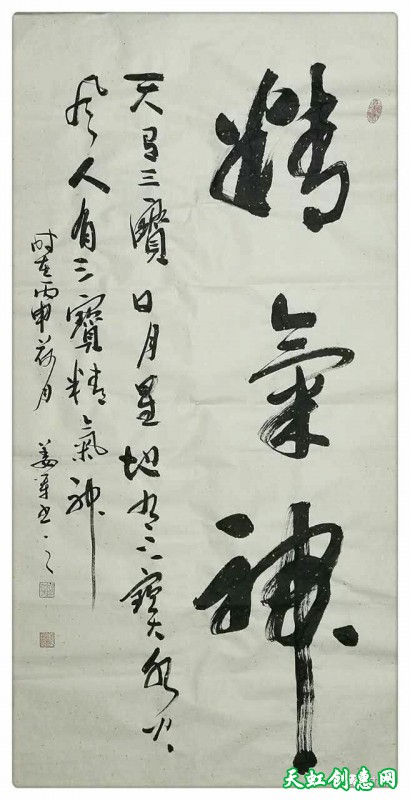 精氣神
天有三寳日月星地有三寶水火
風人有三寳精氣神
時在丙申荷月
姜军书之
天虹创穗网